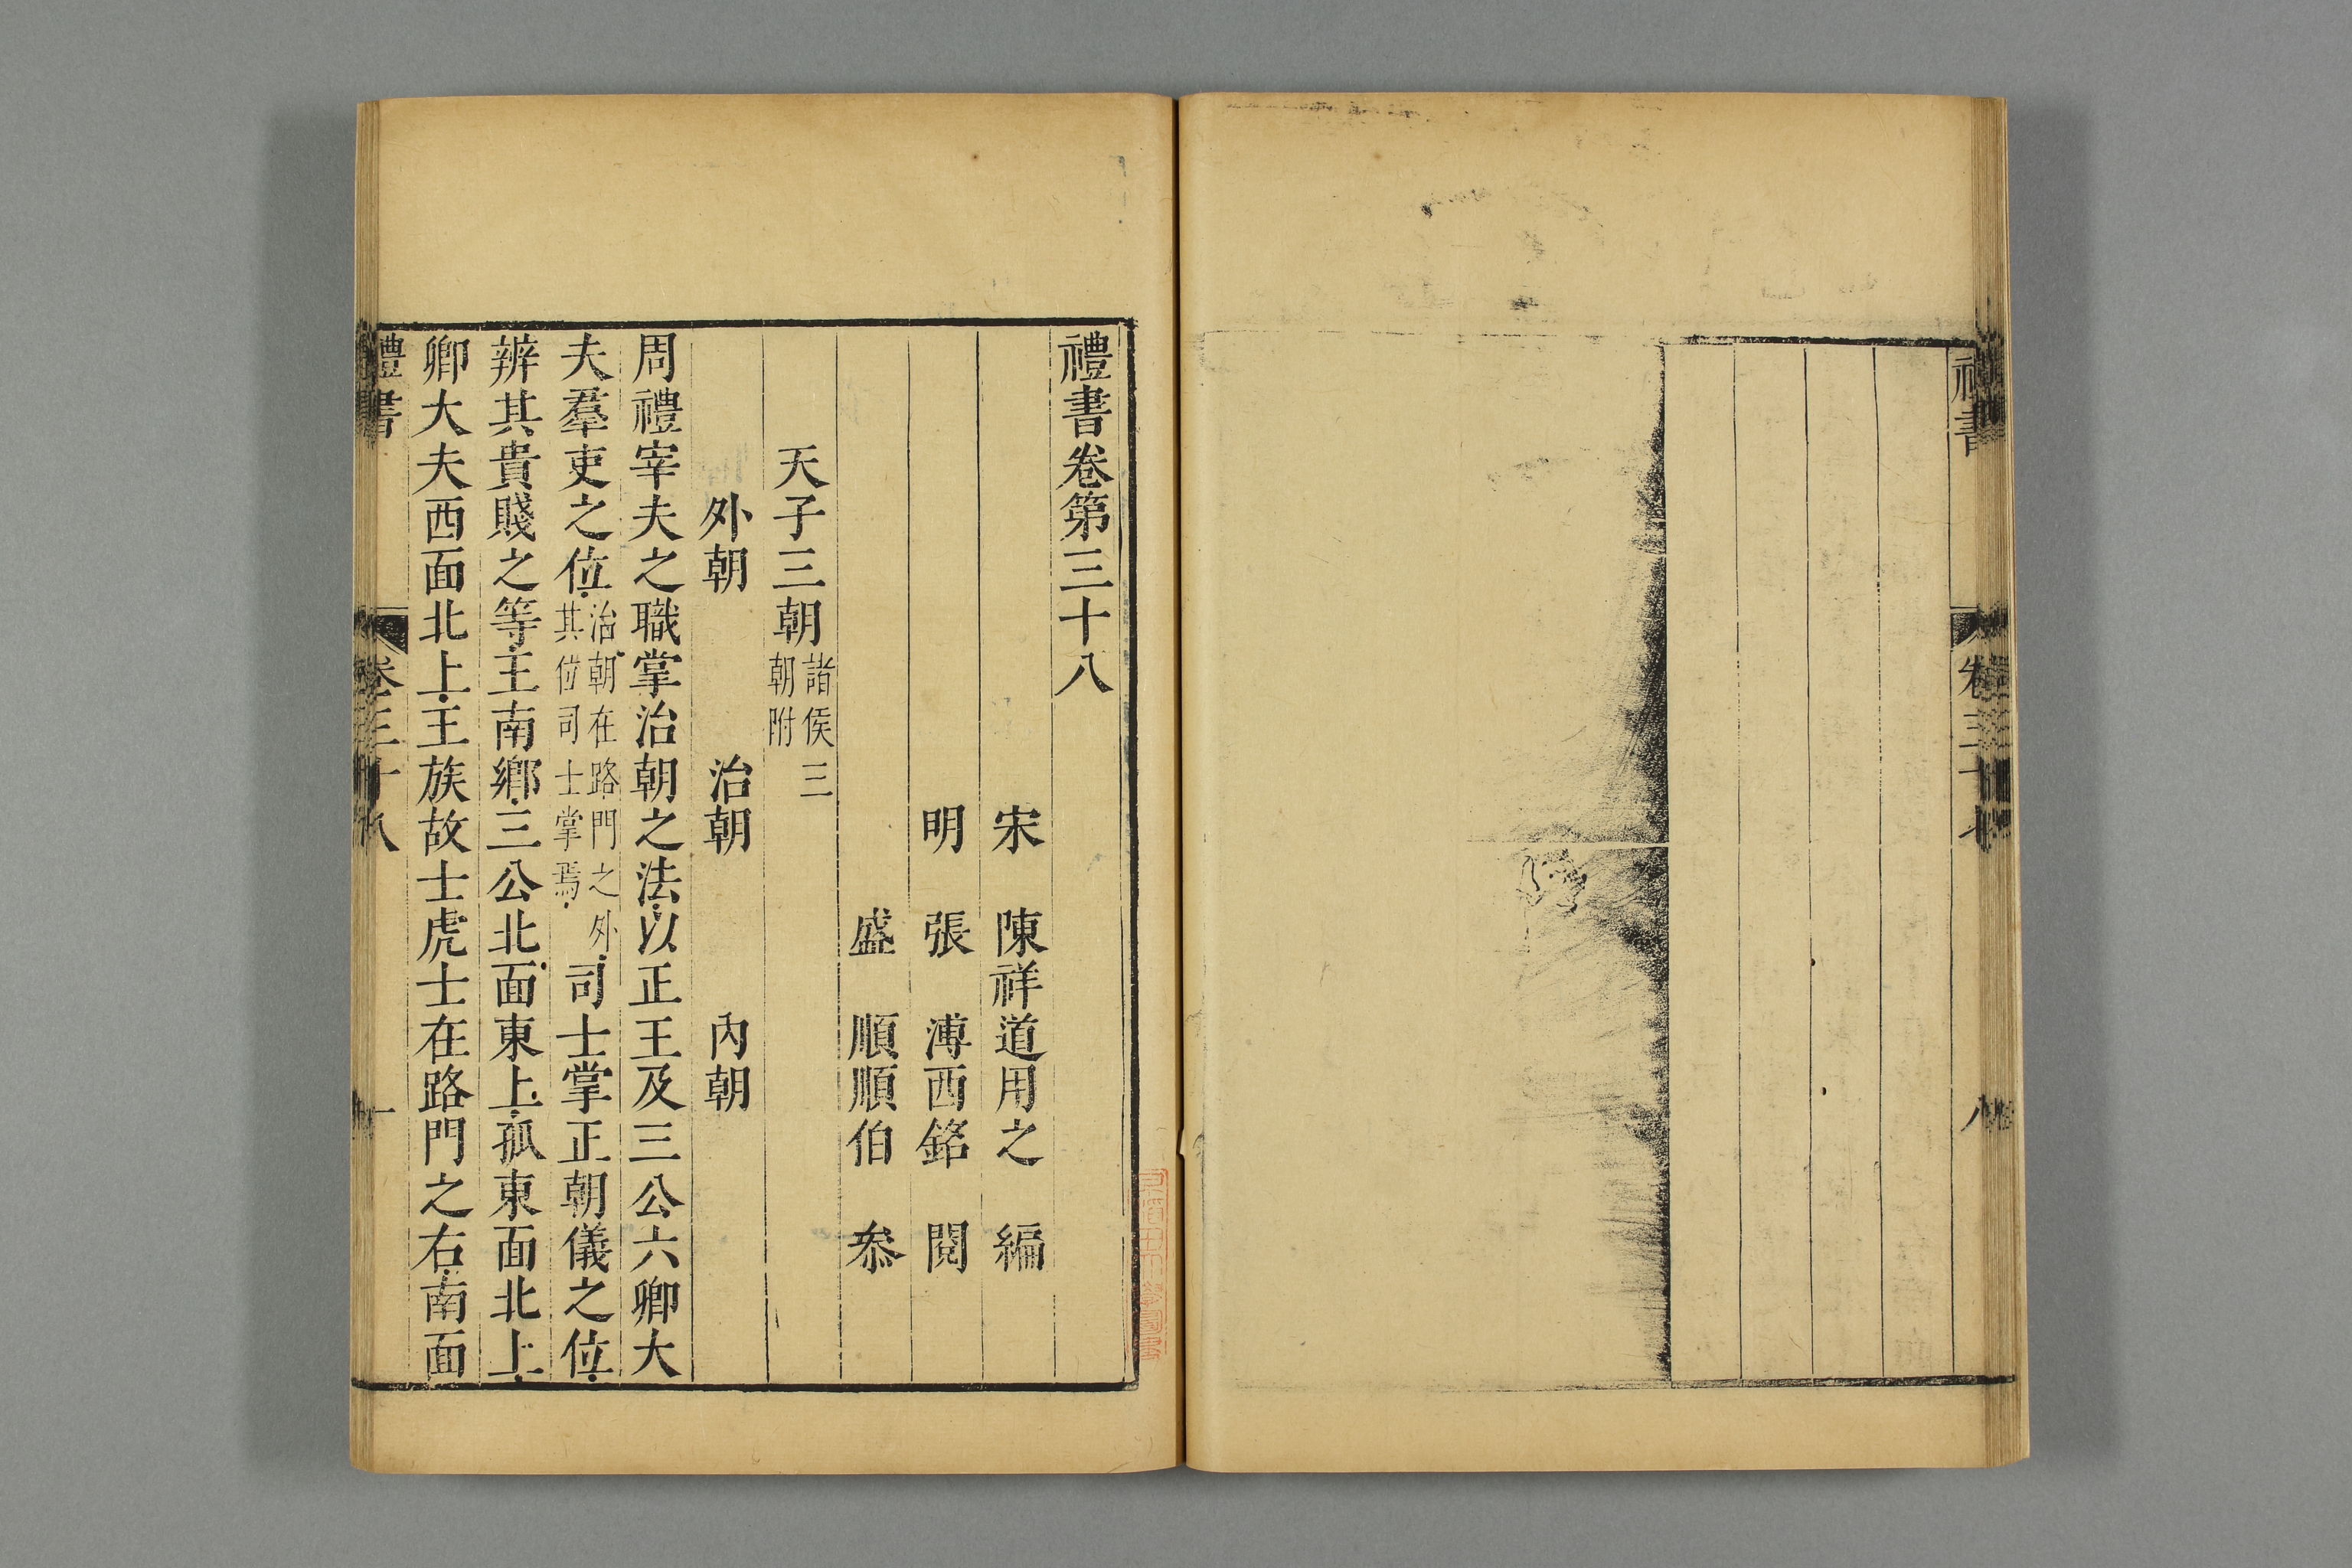 禮書
卷三十七
八
禮書卷第三十八
宋 陳祥道用之 編
明 張 溥西銘 閱
盛 順順伯 叅
天子三朝諸侯三朝附
外朝 治朝 內朝
周禮宰夫之職掌治朝之法以正王及三公六卿大
夫羣吏之位治朝在路門之外其位司士掌焉司士掌正朝儀之位
辨其貴賤之等王南鄉三公北面東上孤東面北上
卿大夫西面北上王族故士虎士在路門之右南面
禮書
卷三十八
一